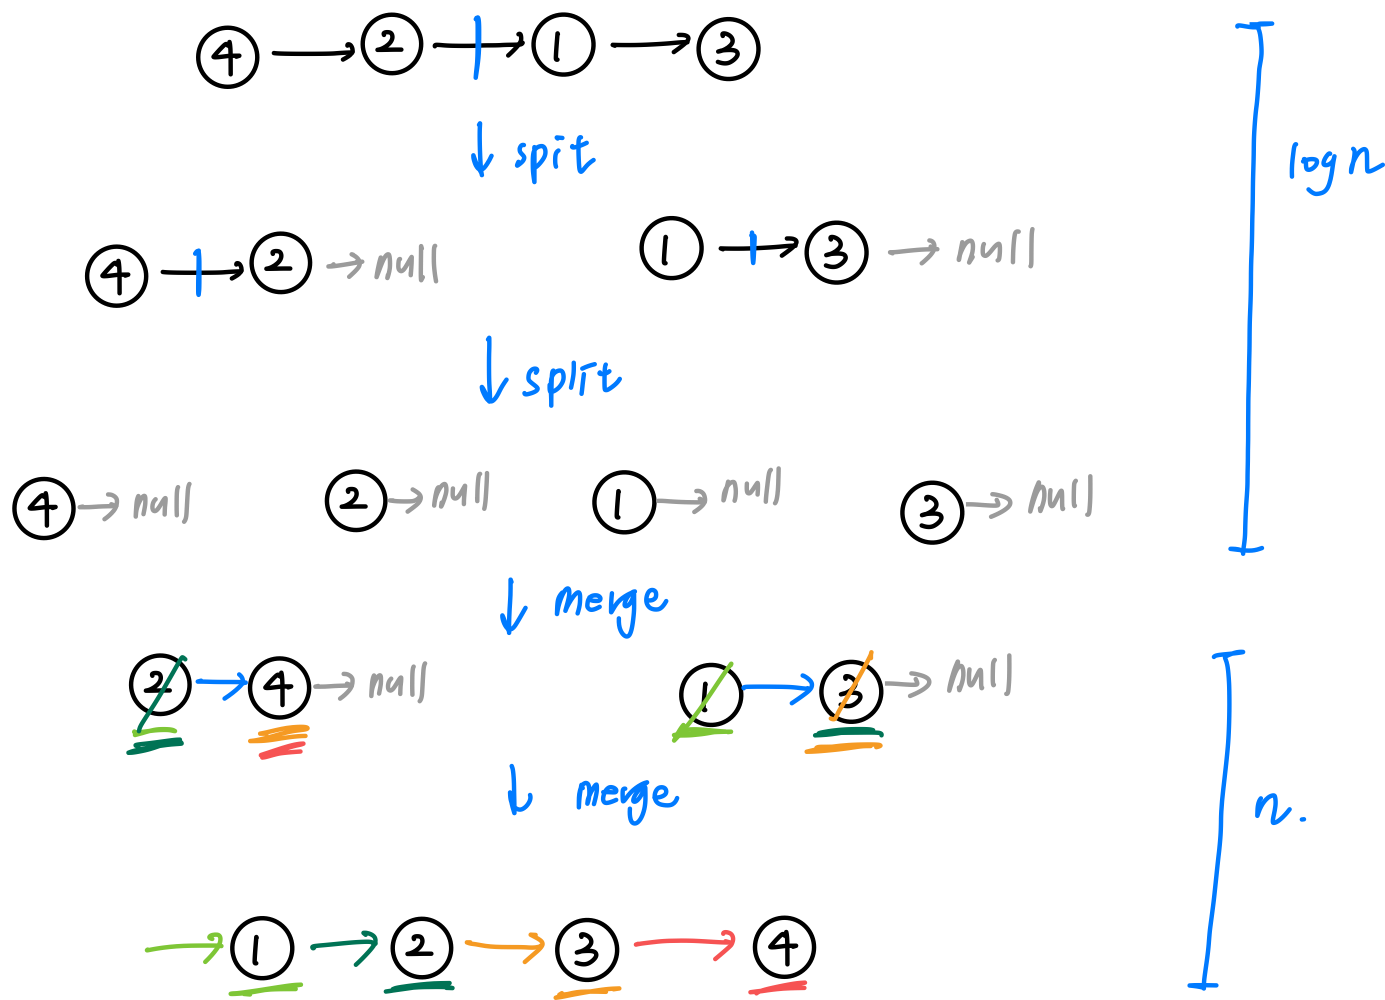 4 2 1 3
spit
log n
4 2 null 1 3 null
split
4 null 2 null 1 null 3 null
merge
2 4 null 1 3 null
merge
n.
1 2 3 4